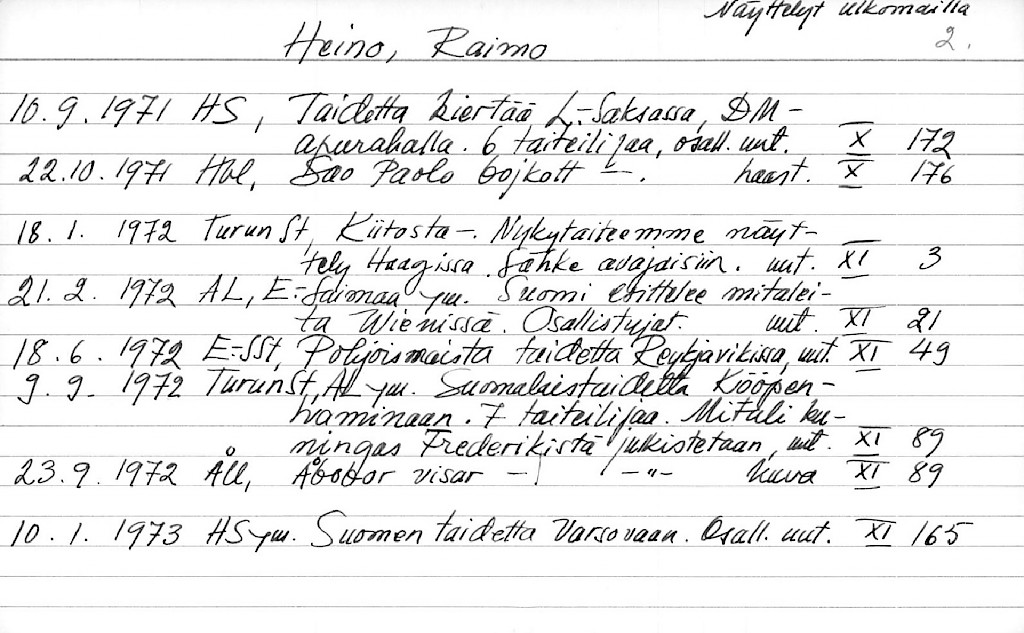 Näyttelyt ulkomailla
2.
Heino, Raimo
10.9.1971 HS, Taidetta kiertää L-Saksassa, DM-
apurahalla. 6 taiteilijaa, osall. uut. X 172
22.10.1971 Hbl, Sao Paolo bojkott -. haast. X 176
18.1. 1972 TurunSt, Kiitosta -. Nykytaiteemme näyt-
tely Haagissa. Sähke avajaisiin. uut. XI 3
21.2. 1972 AL, E-Saimaa ym. Suomi esittelee mitalei-
ta Wienissä. Osallistujat. uut. XI 21
18.6. 1972 E-SSt, Pohjoismaista taidetta Reykjavikissa, uut. XI 49
9.9. 1972 TurunSt, AL ym. Suomalaistaidetta Kööpen-
haminaan. 7 taiteilijaa. Mitali ku-
ningas Frederikistä julkistetaan, uut. XI 89
23.9.1972 ÅU, Åbobor visar - -"- kuva XI 89
10.1. 1973 HS ym. Suomen taidetta Varsovaan. Osall. uut. XI 165